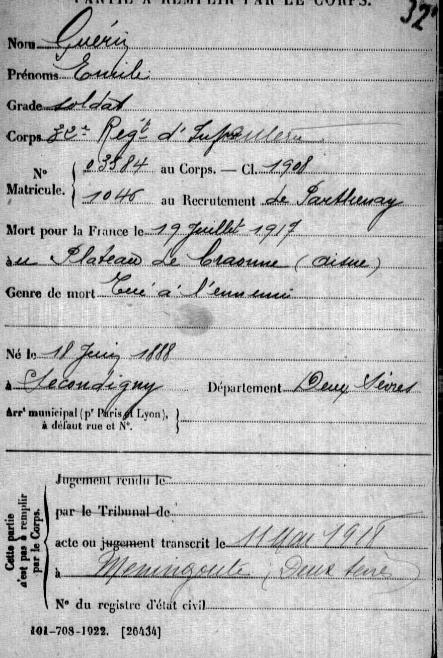 PARTIE À REMPLIR PAR LE CORPS.
32
Nom Guérin
Prénoms Emile
Grade soldat
Corps 32e Regt d'Infanterie
N° Matricule. { 03584 au Corps. — Cl. 1908
1046 au Recrutement de Parthenay
Mort pour la France le 19 Juillet 1917
au Plateau de Craonne (Aisne)
Genre de mort Tué à l'ennemi
Né le 18 Juin 1888
à Secondigny Département Deux Sèvres
Arrt municipal (pr Paris et Lyon), }
à défaut rue et N°.
Cette partie n'est pas à remplir par le Corps.
Jugement rendu le
par le Tribunal de
acte ou jugement transcrit le 11 Mai 1918
à Menigoute (Deux Sèvres)
N° du registre d'état civil
101-708-1922. [26434]